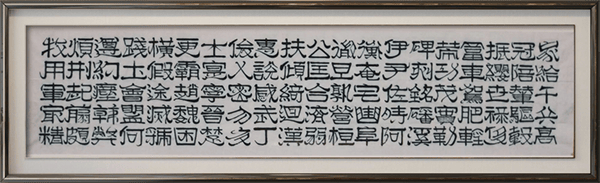 家給千兵高
冠陪輦驅轂
振纓世祿侈
富車駕肥輕
策功茂實勒
碑刻銘磻溪
伊尹佐時阿
衡奄宅曲阜
微旦孰營桓
公匡合濟弱
扶傾綺迴漢
惠說感武丁
俊乂密勿多
士寔寧晉楚
更霸趙魏困
橫假途滅虢
踐土會盟何
遵約法韓弊
煩刑起翦頗
牧用軍最精